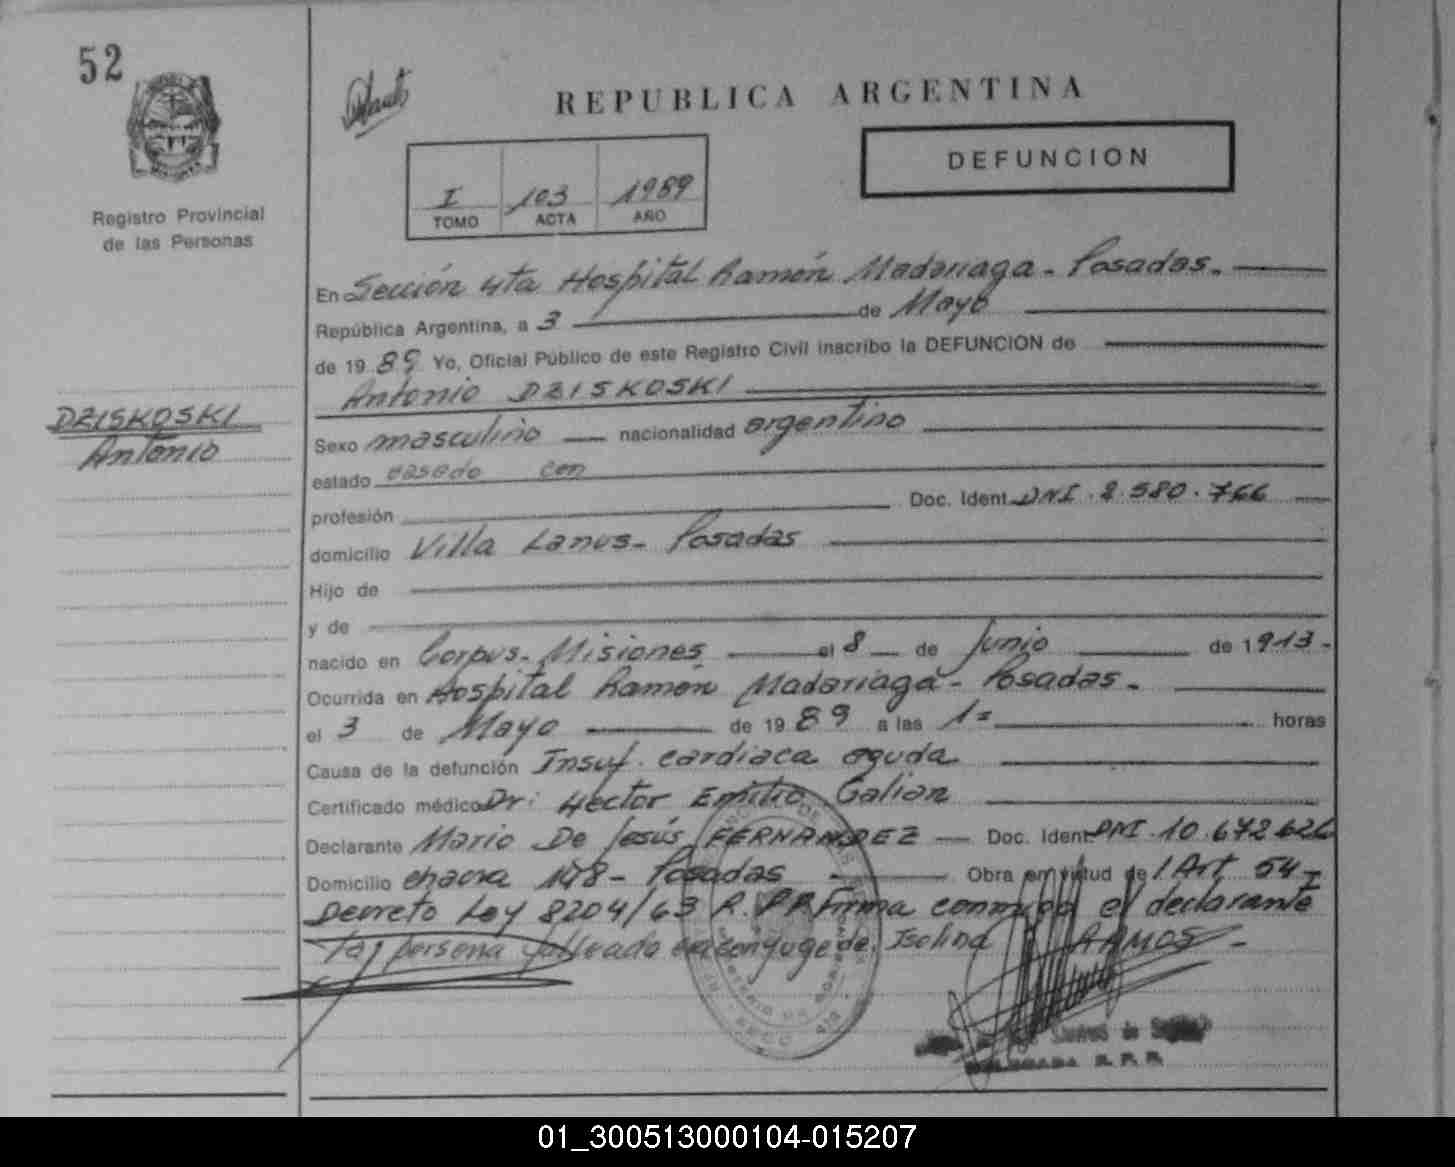 52
Registro Provincial
de las Personas
DZISKOSKI
Antonio
REPUBLICA ARGENTINA
DEFUNCION
I 103 1989
TOMO ACTA AÑO
En Sección 4ta Hospital Ramón Madariaga - Posadas.
República Argentina, a 3 de Mayo
de 1989 Yo, Oficial Público de este Registro Civil inscribo la DEFUNCION de
Antonio DZISKOSKI
Sexo masculino nacionalidad argentino
estado casado con
profesión Doc. Ident. DNI. 2.580.766
domicilio Villa Lanus - Posadas
Hijo de
y de
nacido en Corpus - Misiones el 8 de Junio de 1913-
Ocurrida en Hospital Ramón Madariaga - Posadas.
el 3 de Mayo de 1989 a las 1= horas
Causa de la defunción Insuf. cardiaca aguda
Certificado médico Dr: Hector Emilio Galian
Declarante Mario De Jesús FERNANDEZ Doc. Ident. DNI. 10.672.626
Domicilio chacra 178 - Posadas Obra en virtud de l Art 54-
Decreto Ley 8204/63 Firma conmigo el declarante
persona era conyuge de Isolina RAMOS -
DELEGADA R. P. P.
01_300513000104-015207